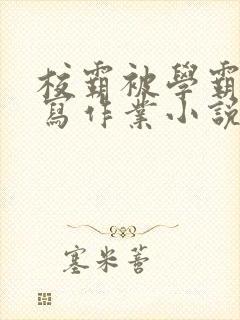 校霸被學霸
寫作業小說
塞米蒈